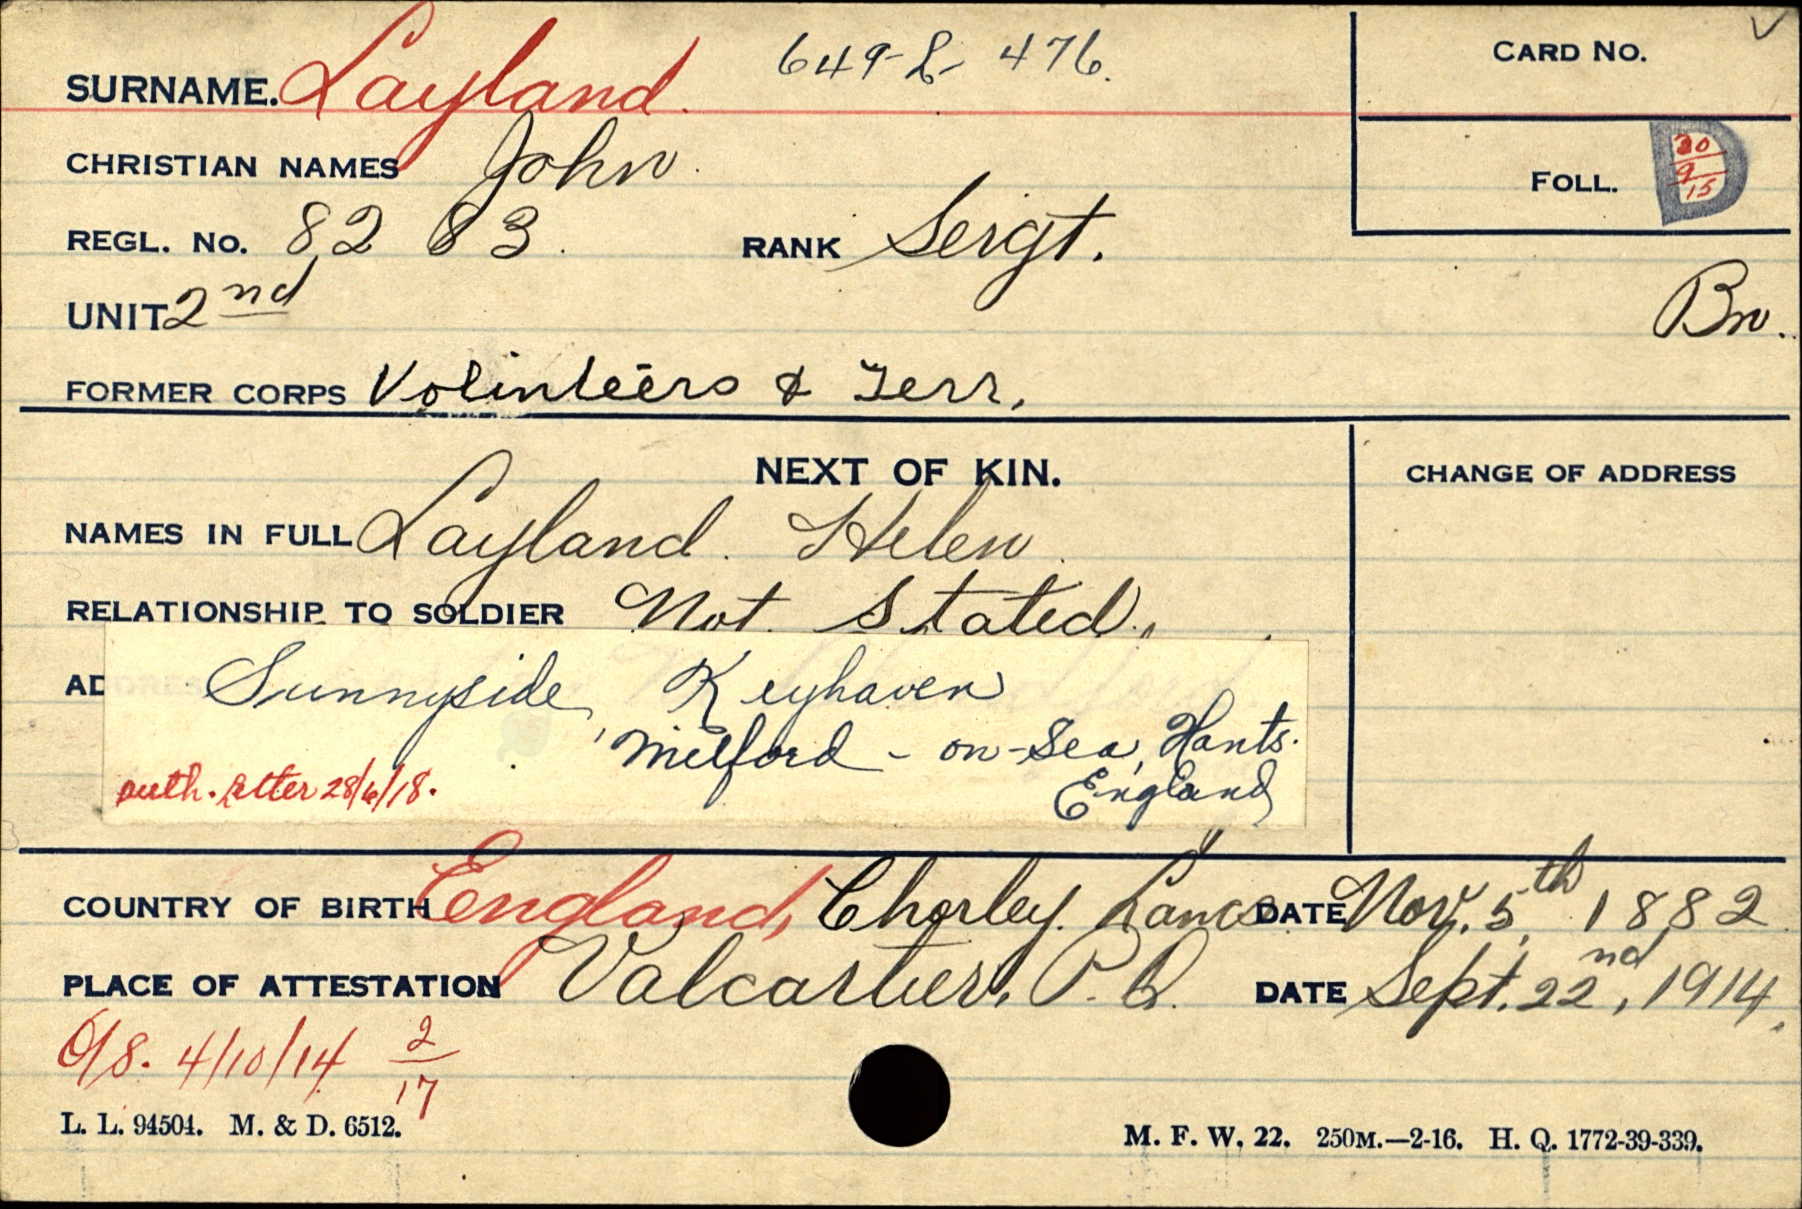 SURNAME. Layland. 649-L-476. CARD NO.
CHRISTIAN NAMES John.
FOLL. D 20/9/15
REGL. NO. 82 83. RANK Sergt.
UNIT 2nd Bn.
FORMER CORPS Volinteers & Terr.
NEXT OF KIN. CHANGE OF ADDRESS
NAMES IN FULL Layland. Helen.
RELATIONSHIP TO SOLDIER Not Stated.
ADDRESS Sunnyside, Keyhaven
Milford - on - Sea, Hants.
auth. letter 28/6/18. England
COUNTRY OF BIRTH England, Chorley. Lancs. DATE Nov. 5th 1882.
PLACE OF ATTESTATION Valcartier, P.Q. DATE Sept. 22nd, 1914.
O/S. 4/10/14 2/17
L. L. 94504. M. & D. 6512.
M. F. W. 22. 250M.—2-16. H. Q. 1772-39-339.